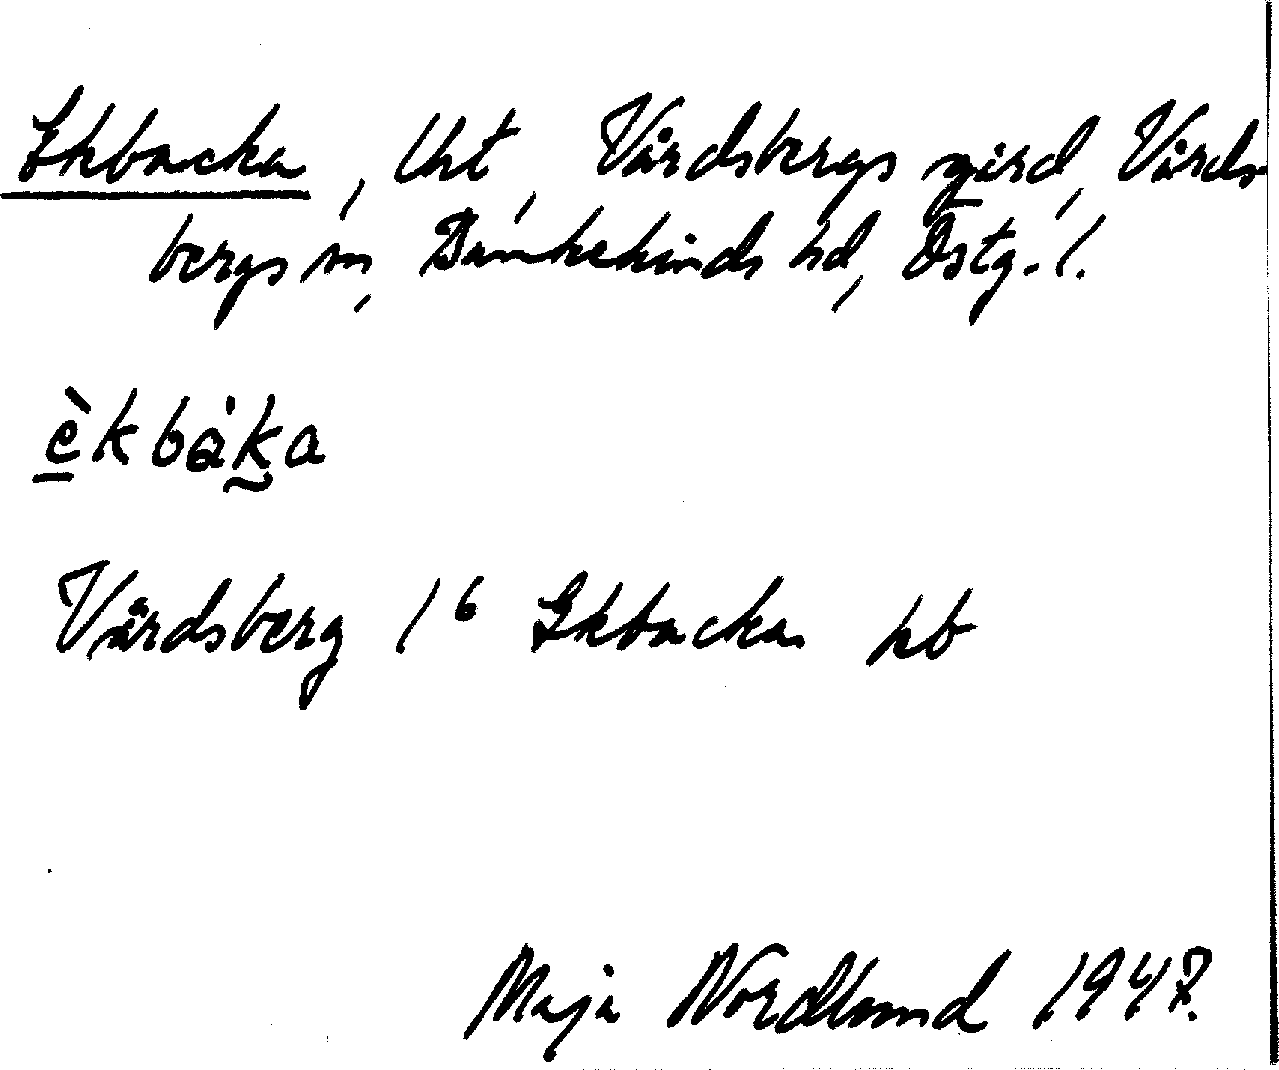 Ekbacka, Uht, Vårdsbergs gärd, Vårds
bergs sn, Bankekinds hd, Östg. l.
èkbàka
Vårdsberg 1⁶ Ekbacka hb
Maja Nordlund 1947.